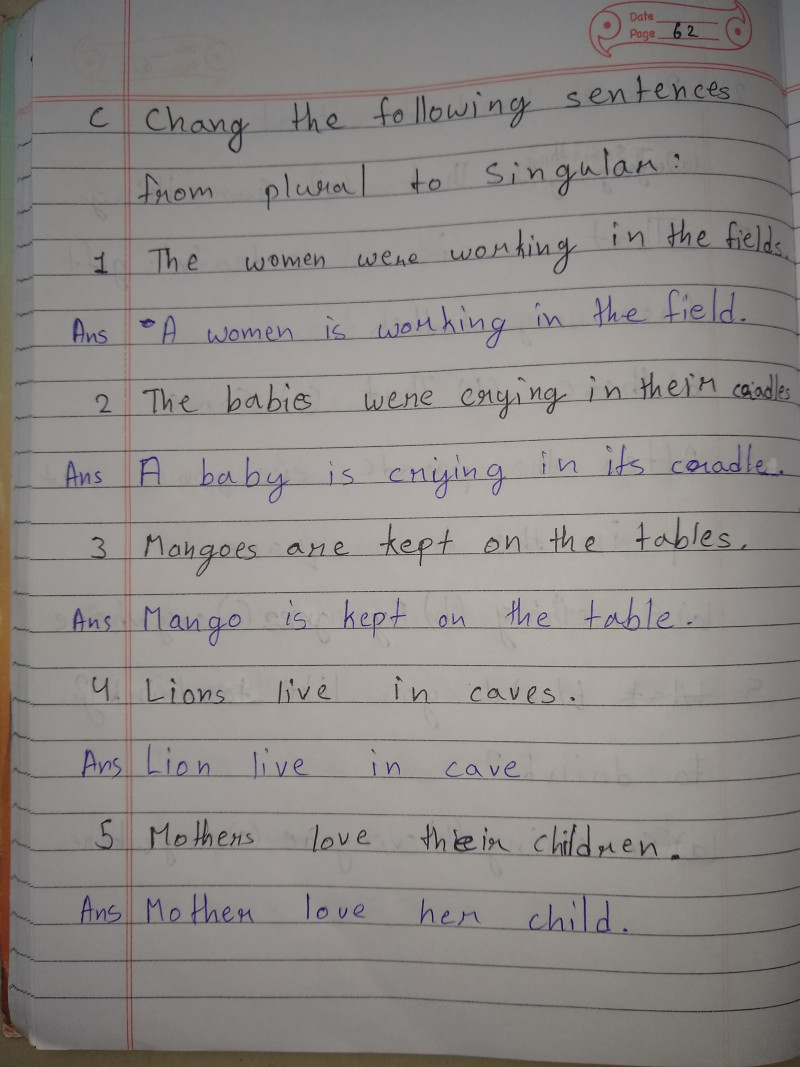 Date
Page 62
C Chang the following sentences
from plural to Singular:
1 The women were working in the fields.
Ans A women is working in the field.
2 The babies were crying in their cradles
Ans A baby is criying in its cradle.
3 Mangoes are kept on the tables.
Ans Mango is kept on the table.
4. Lions live in caves.
Ans Lion live in cave
5 Mothers love their children.
Ans Mother love her child.